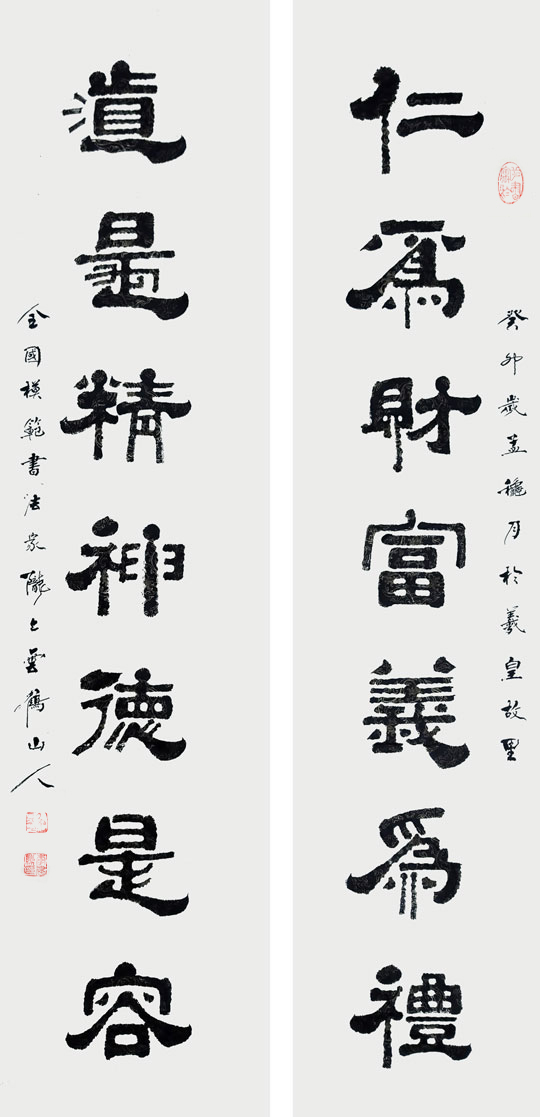 癸卯歲孟穐月於羲皇故里
仁爲財富義爲禮
道是精神德是容
全國模範書法家隴上雲鶴山人